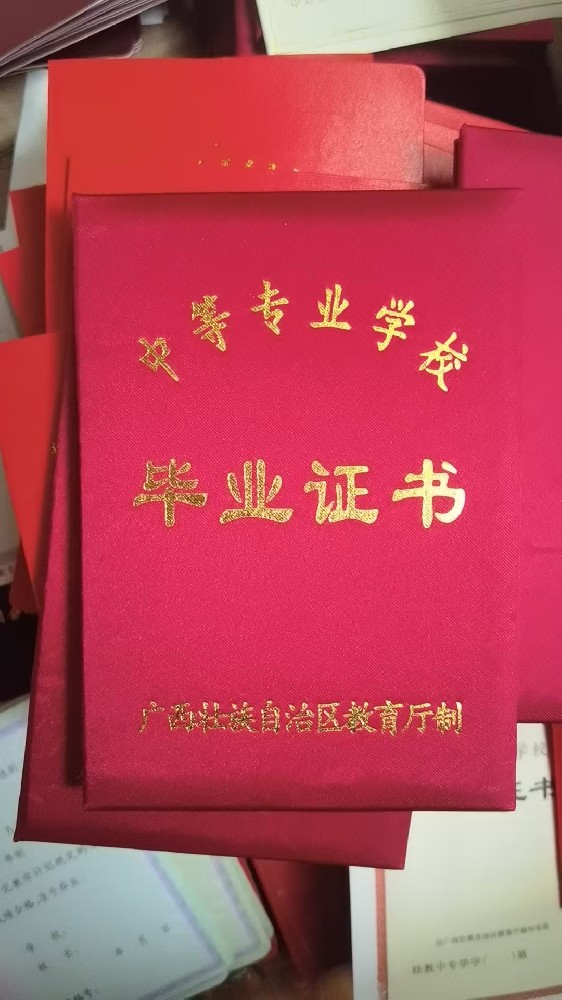 中等专业学校
毕业证书
广西壮族自治区教育厅制
学校
证书
学校：
校长：
年 月 日
桂教中专毕字（ ）第